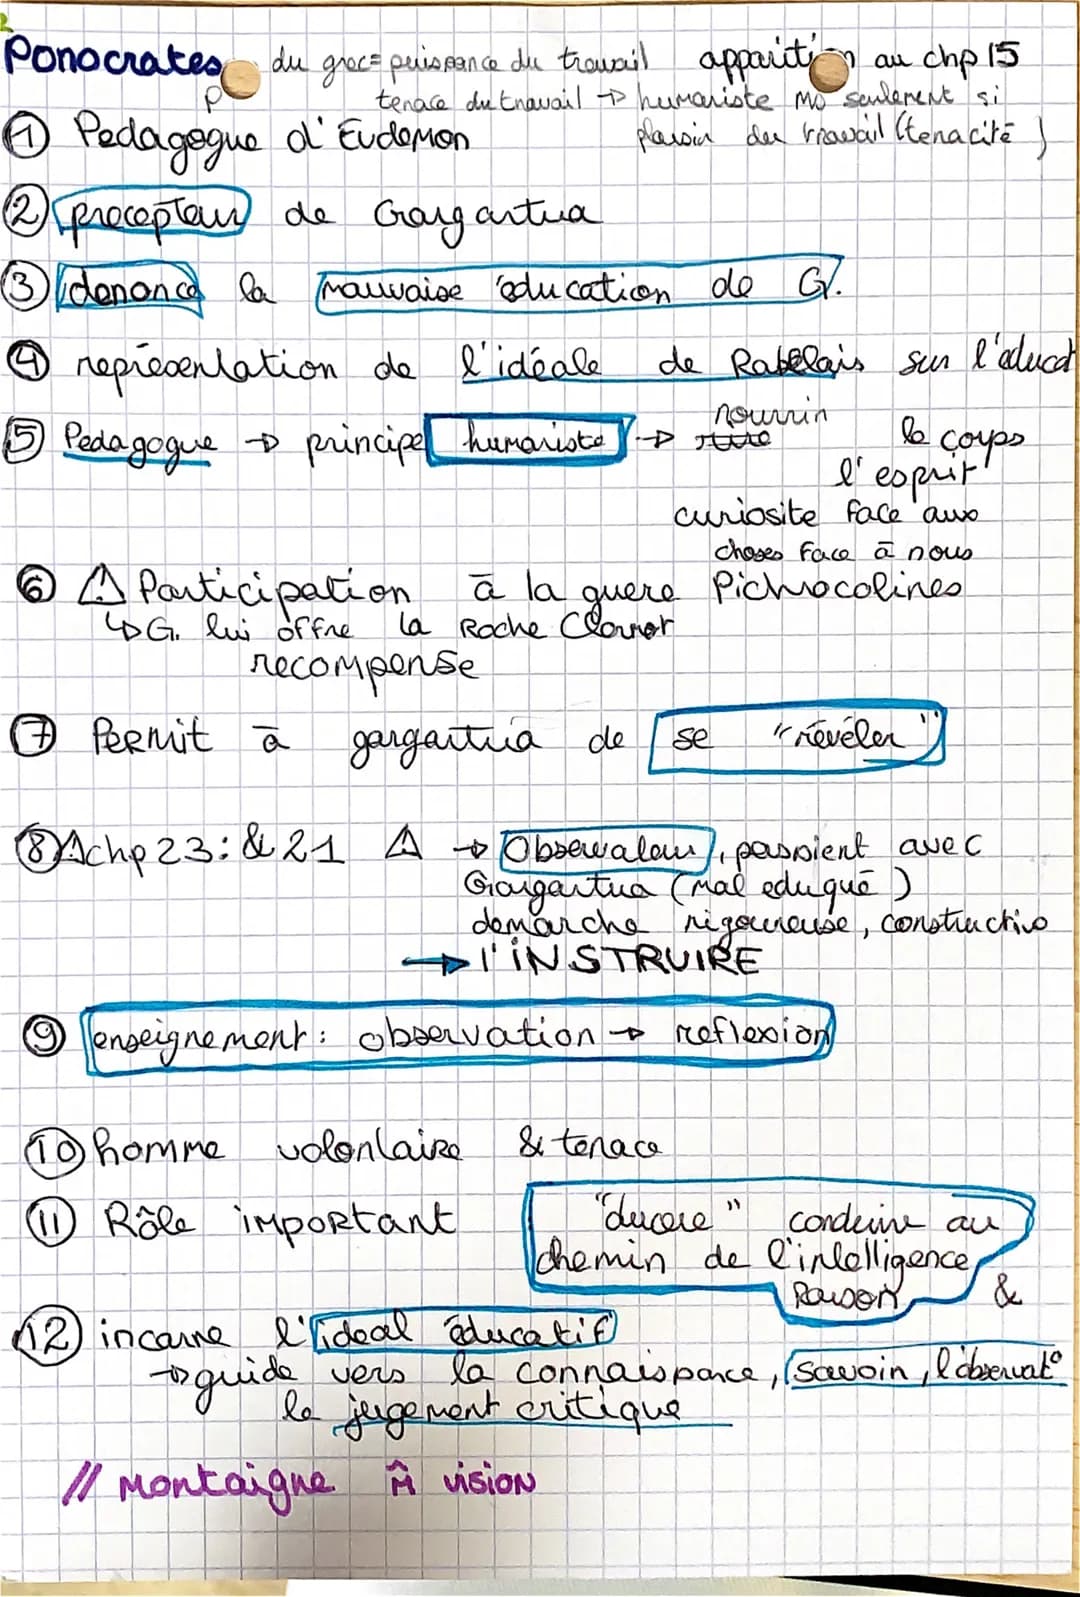 Ponocrates du grec = puissance du travail apparition au chp 15
tenace du travail → humaniste mo seulement si
① Pedagogue d'Eudemon plaisir du travail (tenacité)
② precepteur de Gargantua
③ denonce la mauvaise éducation de G.
④ représentation de l'idéale de Rabelais sur l'éducat
⑤ Pedagogue → principe humaniste → nourrir le corps
l'esprit
curiosite face aux
choses face à nous
⑥ ⚠ Participation à la guere Pichrocolines
↳ G. lui offre la Roche Clermot
recompense
⑦ Permit à gargantua de se "révéler"
⑧ ⚠ chp 23: & 21 ⚠ → Observateur, paspient avec
Gargantua (mal eduqué)
demarche rigoureuse, constructive
→ l'INSTRUIRE
⑨ enseignement : observation → reflexion
⑩ homme volontaire & tenace
⑪ Rôle important "ducere" conduire au
chemin de l'intelligence
Raison &
⑫ incarne l'ideal éducatif
→ guide vers la connaissance, savoir, l'observat°
le jugement critique
// Montaigne m̂ vision